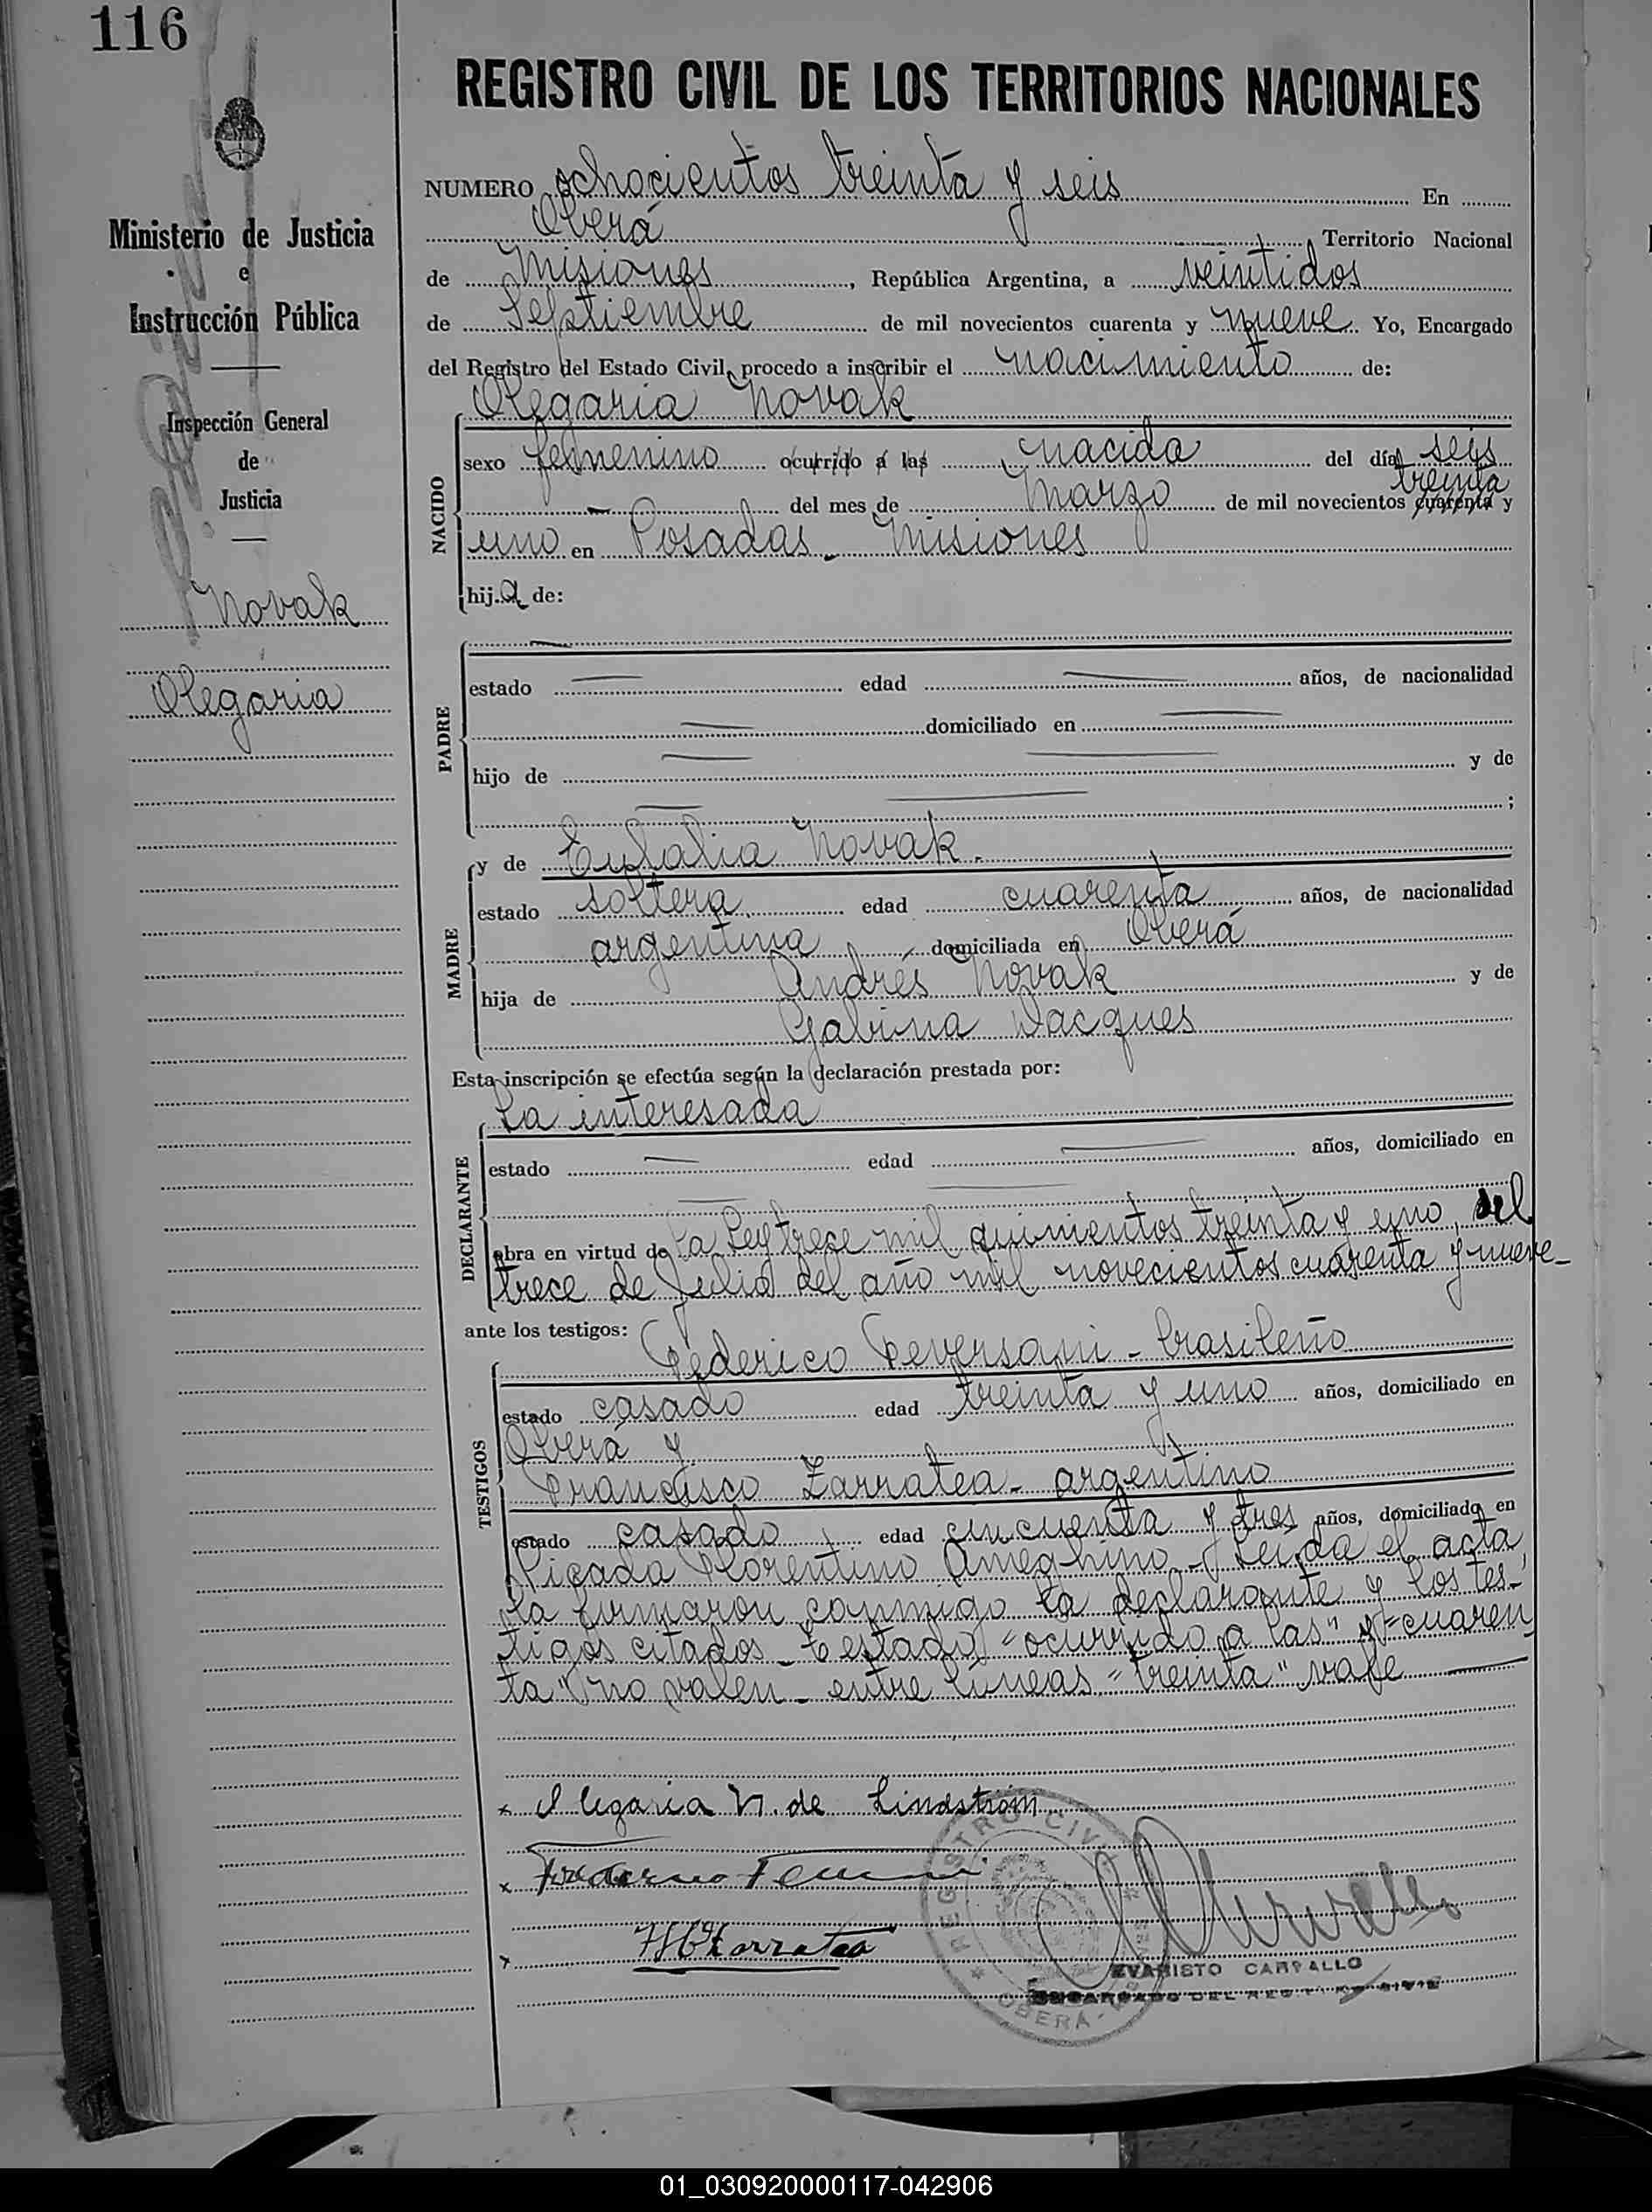 116
REGISTRO CIVIL DE LOS TERRITORIOS NACIONALES
Ministerio de Justicia
e
Instrucción Pública
Inspección General
de
Justicia
Novak
Olegaria
NUMERO ochocientos treinta y seis En
Oberá Territorio Nacional
de Misiones, República Argentina, a veintidos
de Septiembre de mil novecientos cuarenta y nueve. Yo, Encargado
del Registro del Estado Civil, procedo a inscribir el nacimiento de:
Olegaria Novak
NACIDO
sexo femenino ocurrido a las nacida del día seis
treinta
del mes de Marzo de mil novecientos cuarenta y
uno en Posadas - Misiones
hija de:
PADRE
estado edad años, de nacionalidad
domiciliado en
hijo de y de
;
MADRE
y de Eulalia Novak.
estado soltera edad cuarenta años, de nacionalidad
argentina domiciliada en Oberá
hija de Andrés Novak y de
Gabina Dacques
Esta inscripción se efectúa según la declaración prestada por:
DECLARANTE
La interesada
estado edad años, domiciliado en
obra en virtud de la Ley trece mil quinientos treinta y uno del
trece de Julio del año mil novecientos cuarenta y nueve-
ante los testigos:
TESTIGOS
Federico - brasileño
estado casado edad treinta y uno años, domiciliado en
Oberá y
Francisco Zarratea - argentino
estado casado edad cincuenta y tres años, domiciliado en
Picada Florentino Ameghino - Leida el acta,
la firmaron conmigo la declarante y los tes-
tigos citados - Testado "ocurrido a las" y "cuaren
ta" no valen - entre líneas "treinta" vale
x Olegaria N. de Lindstrom
x
x Zarratea
REGISTRO CIVIL
OBERÁ
EVARISTO CARVALLO
ENCARGADO DEL REGISTRO CIVIL
01_030920000117-042906